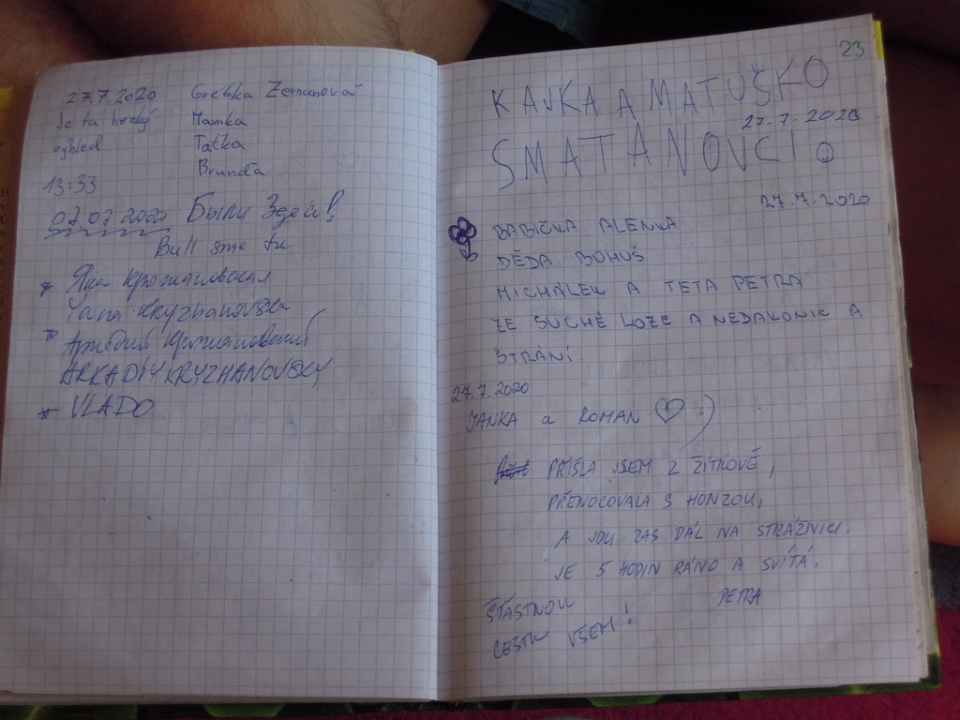 27.7.2020 Grétka Zemanová
Je tu hezký Mamka
výhled Taťka
Brunďa
13:33
07.07.2020 Были Здесь!
Buli sme tu
* Яна Крижановская
Yana Kryzhanovska
* Аркадий Крижановский
ARKADIY KRYZHANOVSKY
* VLADO
23
KAJKA A MATUŠKO
27.7.2020
SMATANOVCI
27.7.2020
BABIČKA ALENKA
DĚDA BOHUŠ
MICHÁLEK A TETA PETRA
ZE SUCHÉ LOZE A NEDAKONIC A
STRÁNÍ
27.7.2020
JANKA a ROMAN :)
PŘIŠLA JSEM Z ŽÍTKOVÉ,
PŘENOCOVALA S HONZOU,
A JDU ZAS DÁL NA STRÁŽNICI.
JE 5 HODIN RÁNO A SVÍTÁ.
PETRA
ŠŤASTNOU
CESTU VŠEM!